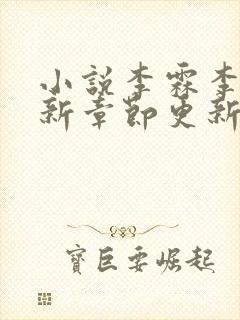 小说李霖李
新章节更新
寶巨要崛起